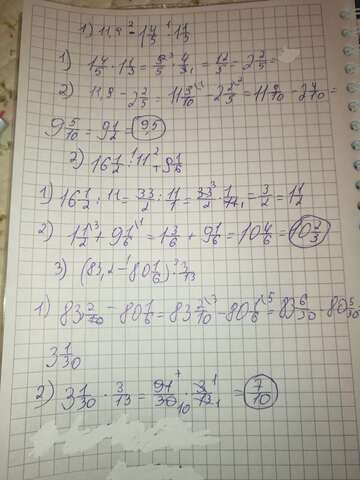 1) 11,9 - 1 4/5 · 1 1/3
1) 1 4/5 · 1 1/3 = 9/5 · 4/3 = 12/5 = 2 2/5
2) 11,9 - 2 2/5 = 11 9/10 - 2 2/5 = 11 9/10 - 2 4/10 =
9 5/10 = 9 1/2 = 9,5
2) 16 1/2 : 11 + 9 1/6
1) 16 1/2 : 11 = 33/2 : 11/1 = 33/2 · 1/11 = 3/2 = 1 1/2
2) 1 1/2 + 9 1/6 = 1 3/6 + 9 1/6 = 10 4/6 = 10 2/3
3) (83,2 - 80 1/6) · 3/13
1) 83 2/10 - 80 1/6 = 83 2/10 - 80 1/6 = 83 6/30 - 80 5/30
3 1/30
2) 3 1/30 · 3/13 = 91/30 · 3/13 = 7/10